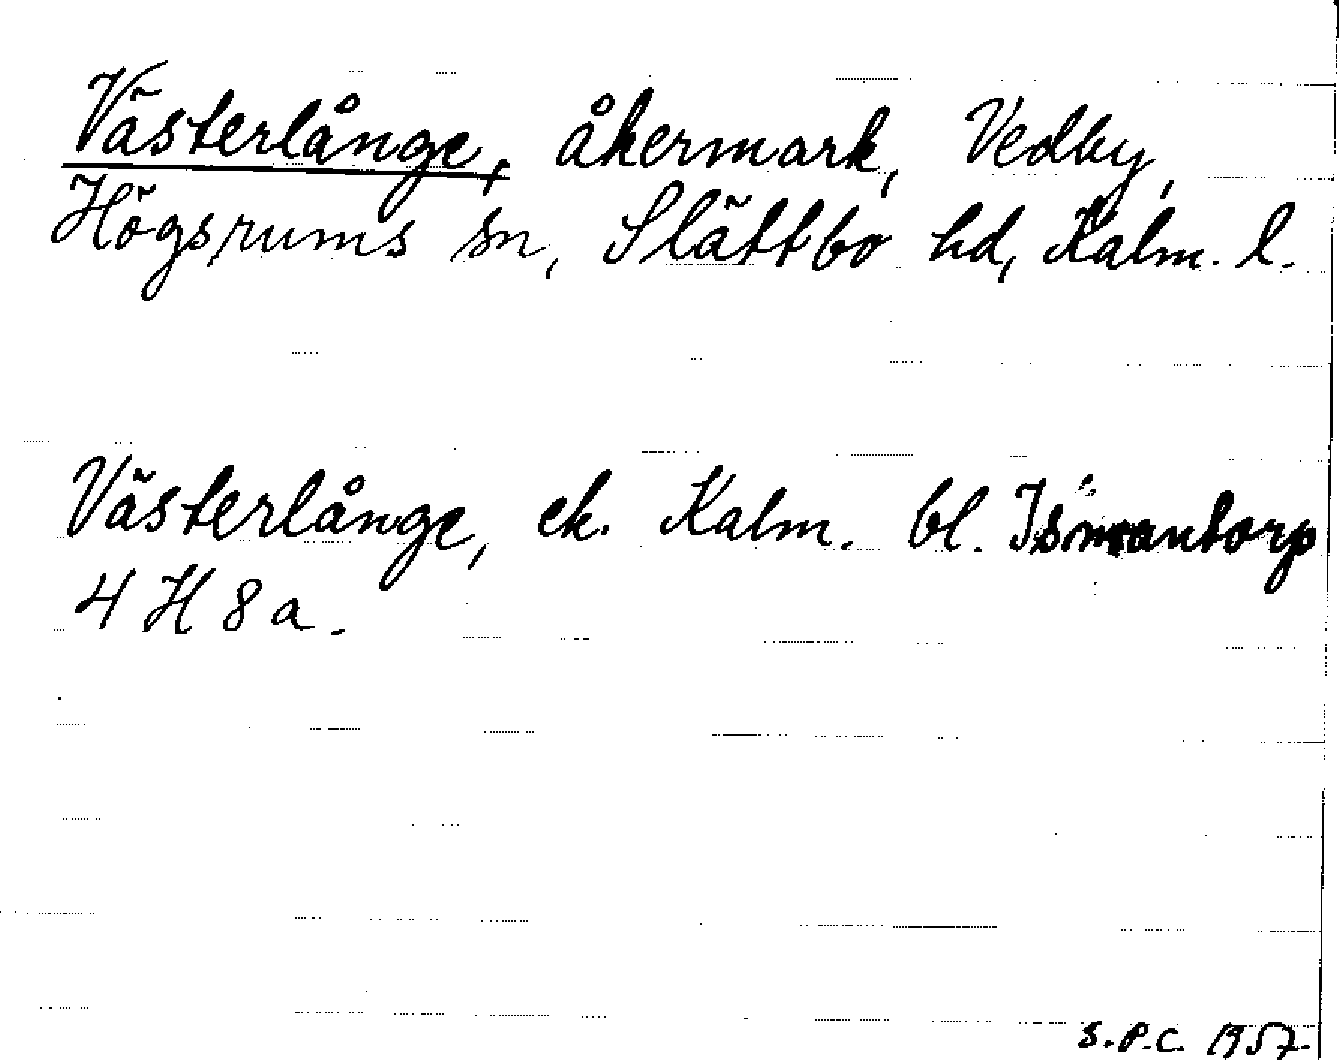 Västerlånge, åkermark, Vedby,
Högsrums sn, Slättbo hd, Kalm. l.
Västerlånge, ek. Kalm. bl. Ismantorp
4 H 8 a.
S.P.C. 1957.